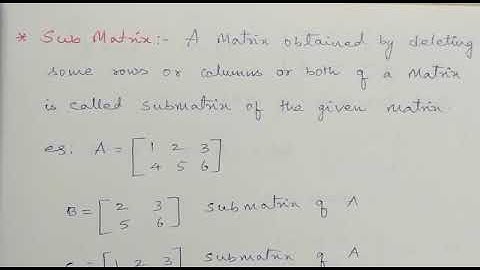 * Sub Matrix:- A Matrix obtained by deleting
some rows or columns or both of a Matrix
is called submatrix of the given matrix.
eg: A = [1 2 3
4 5 6]
B = [2 3
5 6] submatrix of A
[1 2 3] submatrix of A